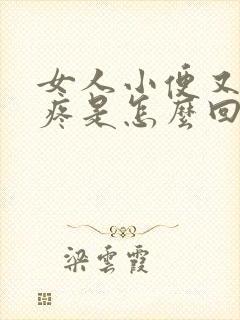 女人小便又
疼是怎麼回
梁雲霞